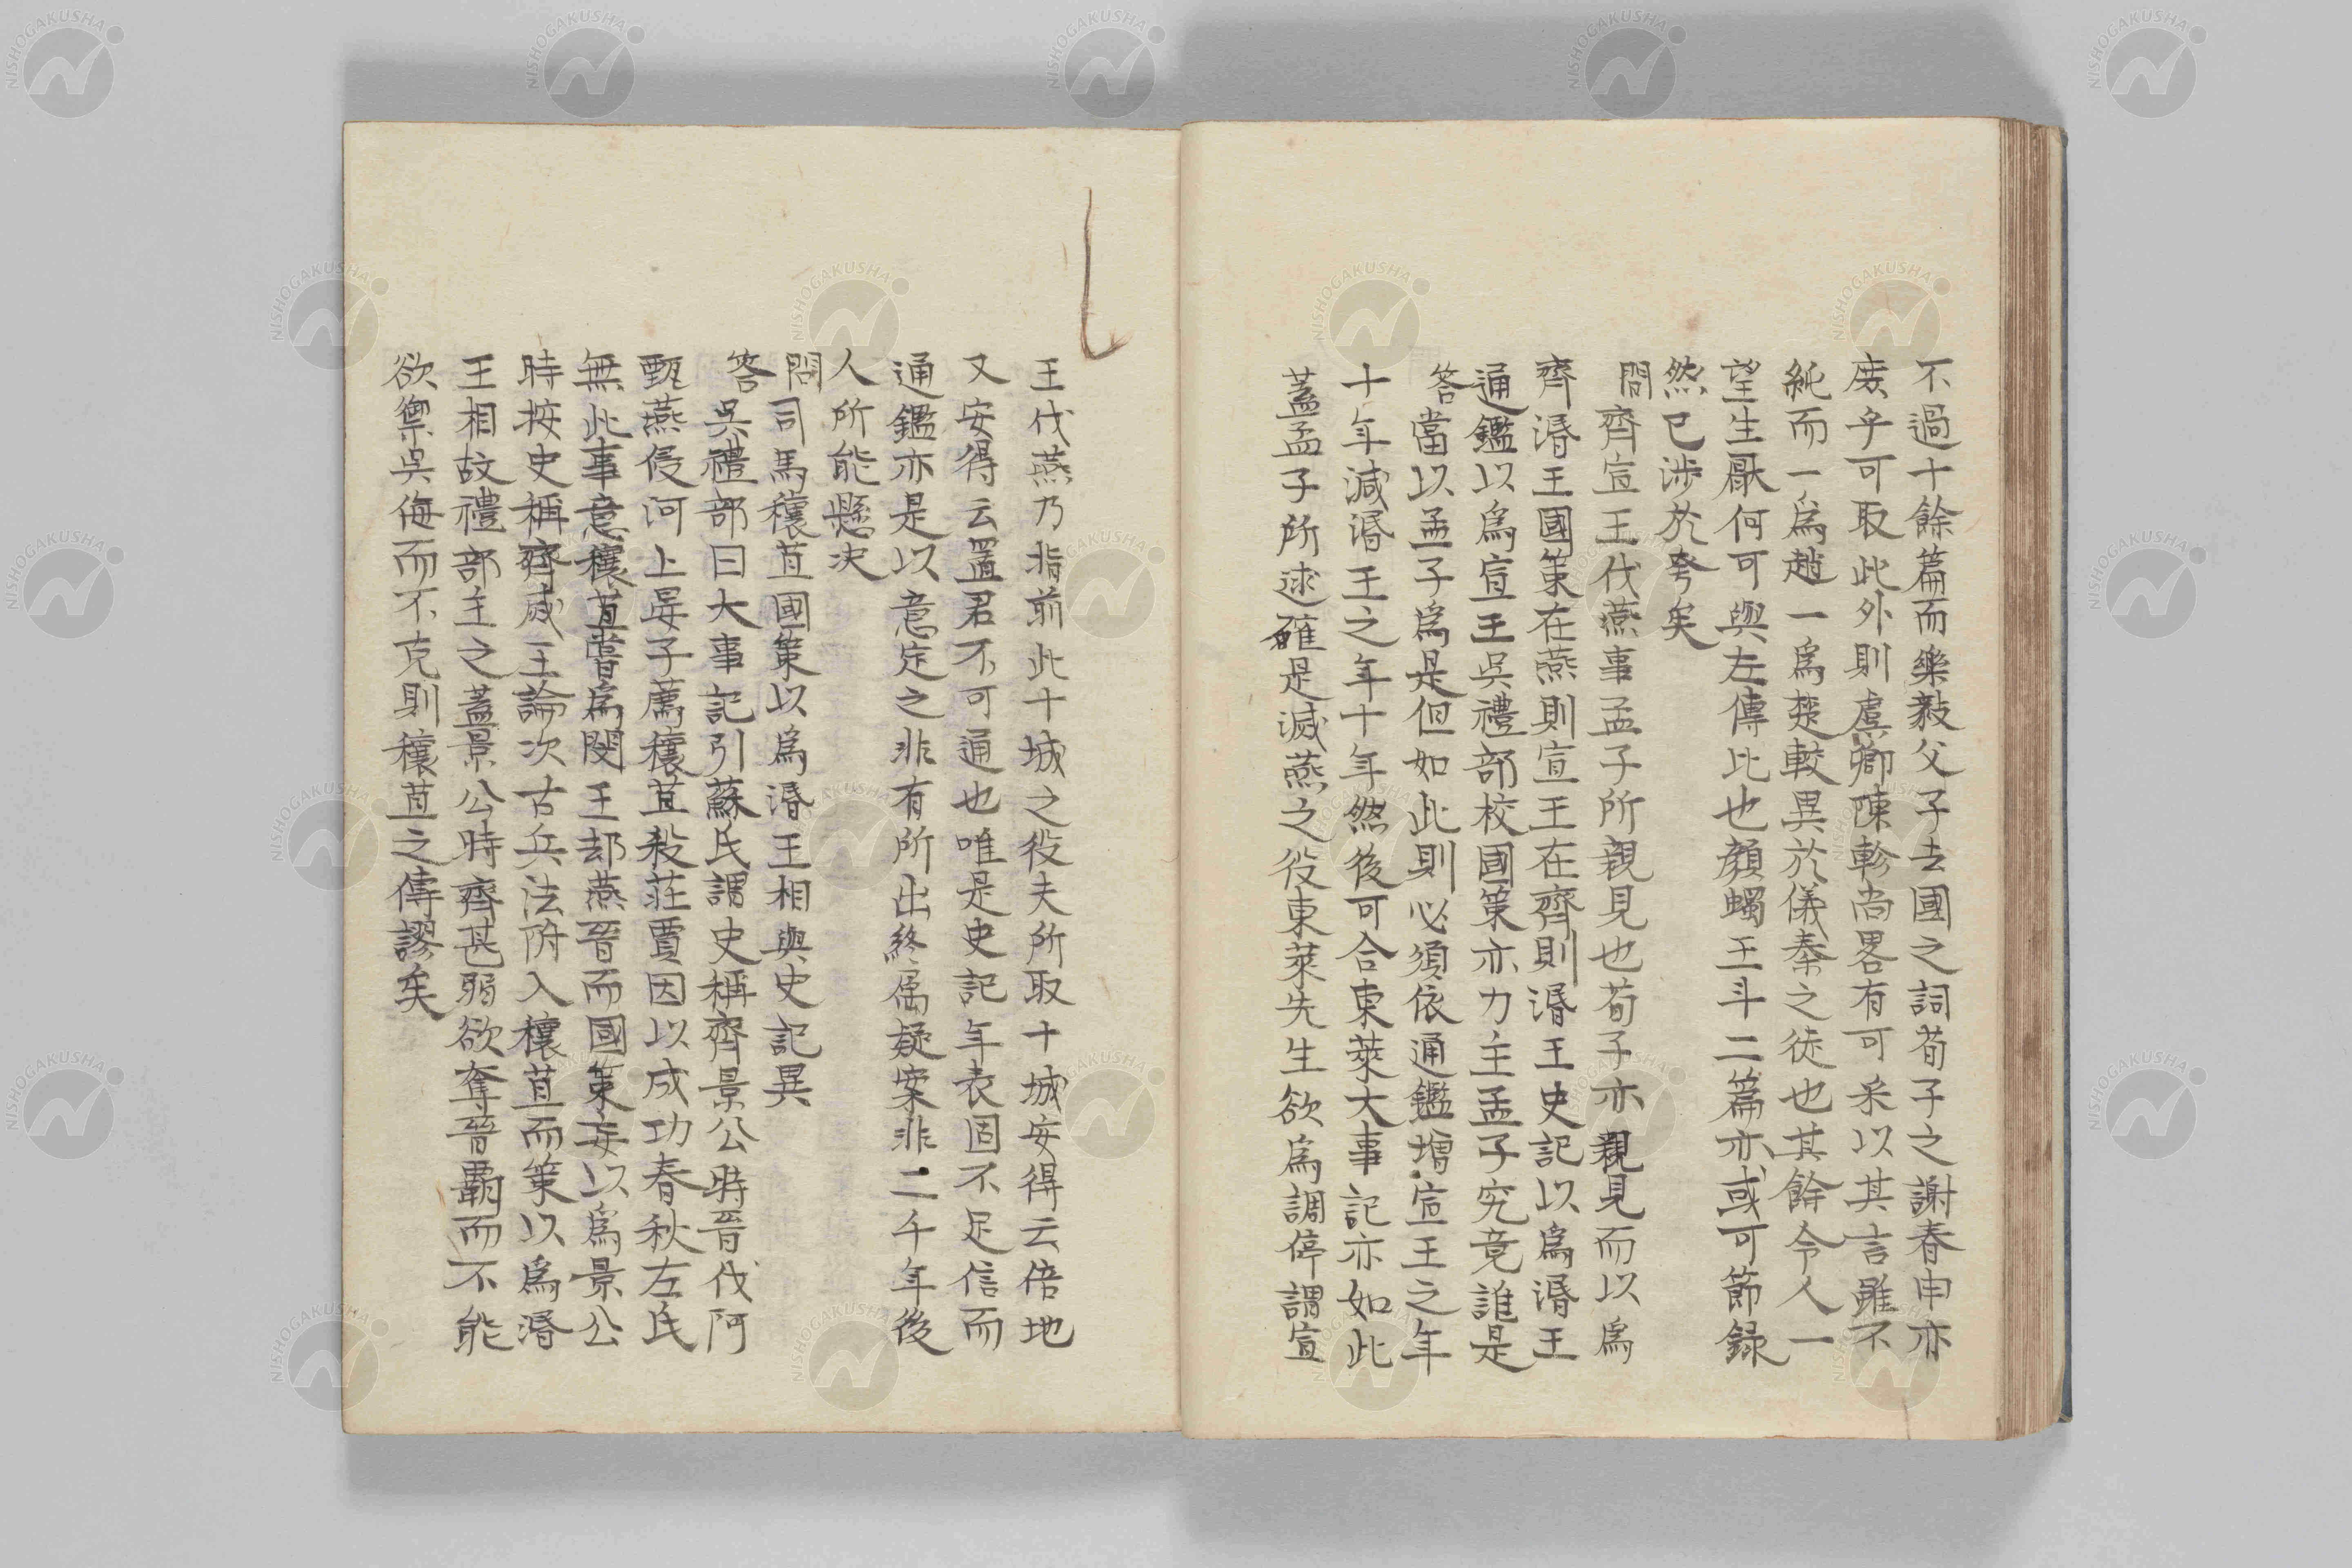 不過十餘篇而樂毅父子去國之詞荀子之謝春申亦
庻乎可取此外則虞卿陳軫尚畧有可采以其言雖不
純而一爲趙一爲楚較異於儀秦之徒也其餘令人一
望生厭何可與左傳比也顏蠋王斗二篇亦或可節録
然已涉於夸矣
問齊宣王伐燕事孟子所親見也荀子亦親見而以爲
齊湣王國策在燕則宣王在齊則湣王史記以爲湣王
通鑑以爲宣王吳禮部校國策亦力主孟子究竟誰是
答當以孟子爲是但如此則必須依通鑑増宣王之年
十年減湣王之年十年然後可合東萊大事記亦如此
蓋孟子所述確是滅燕之役東萊先生欲爲調停謂宣
王伐燕乃指前此十城之役夫所取十城安得云倍地
又安得云置君不可通也唯是史記年表固不足信而
通鑑亦是以意定之非有所出終属疑案非二千年後
人所能懸决
問司馬穰苴國策以爲湣王相與史記異
答吳禮部曰大事記引蘇氏謂史稱齊景公時晉伐阿
甄燕侵河上晏子薦穰苴殺莊賈因以成功春秋左氏
無此事意穰苴嘗爲閔王却燕晉而國策妄以爲景公
時按史稱齊威王論次古兵法附入穰苴而策以爲湣
王相故禮部主之蓋景公時齊甚弱欲奪晉霸而不能
欲禦吳侮而不克則穰苴之傳謬矣
NISHOGAKUSHA